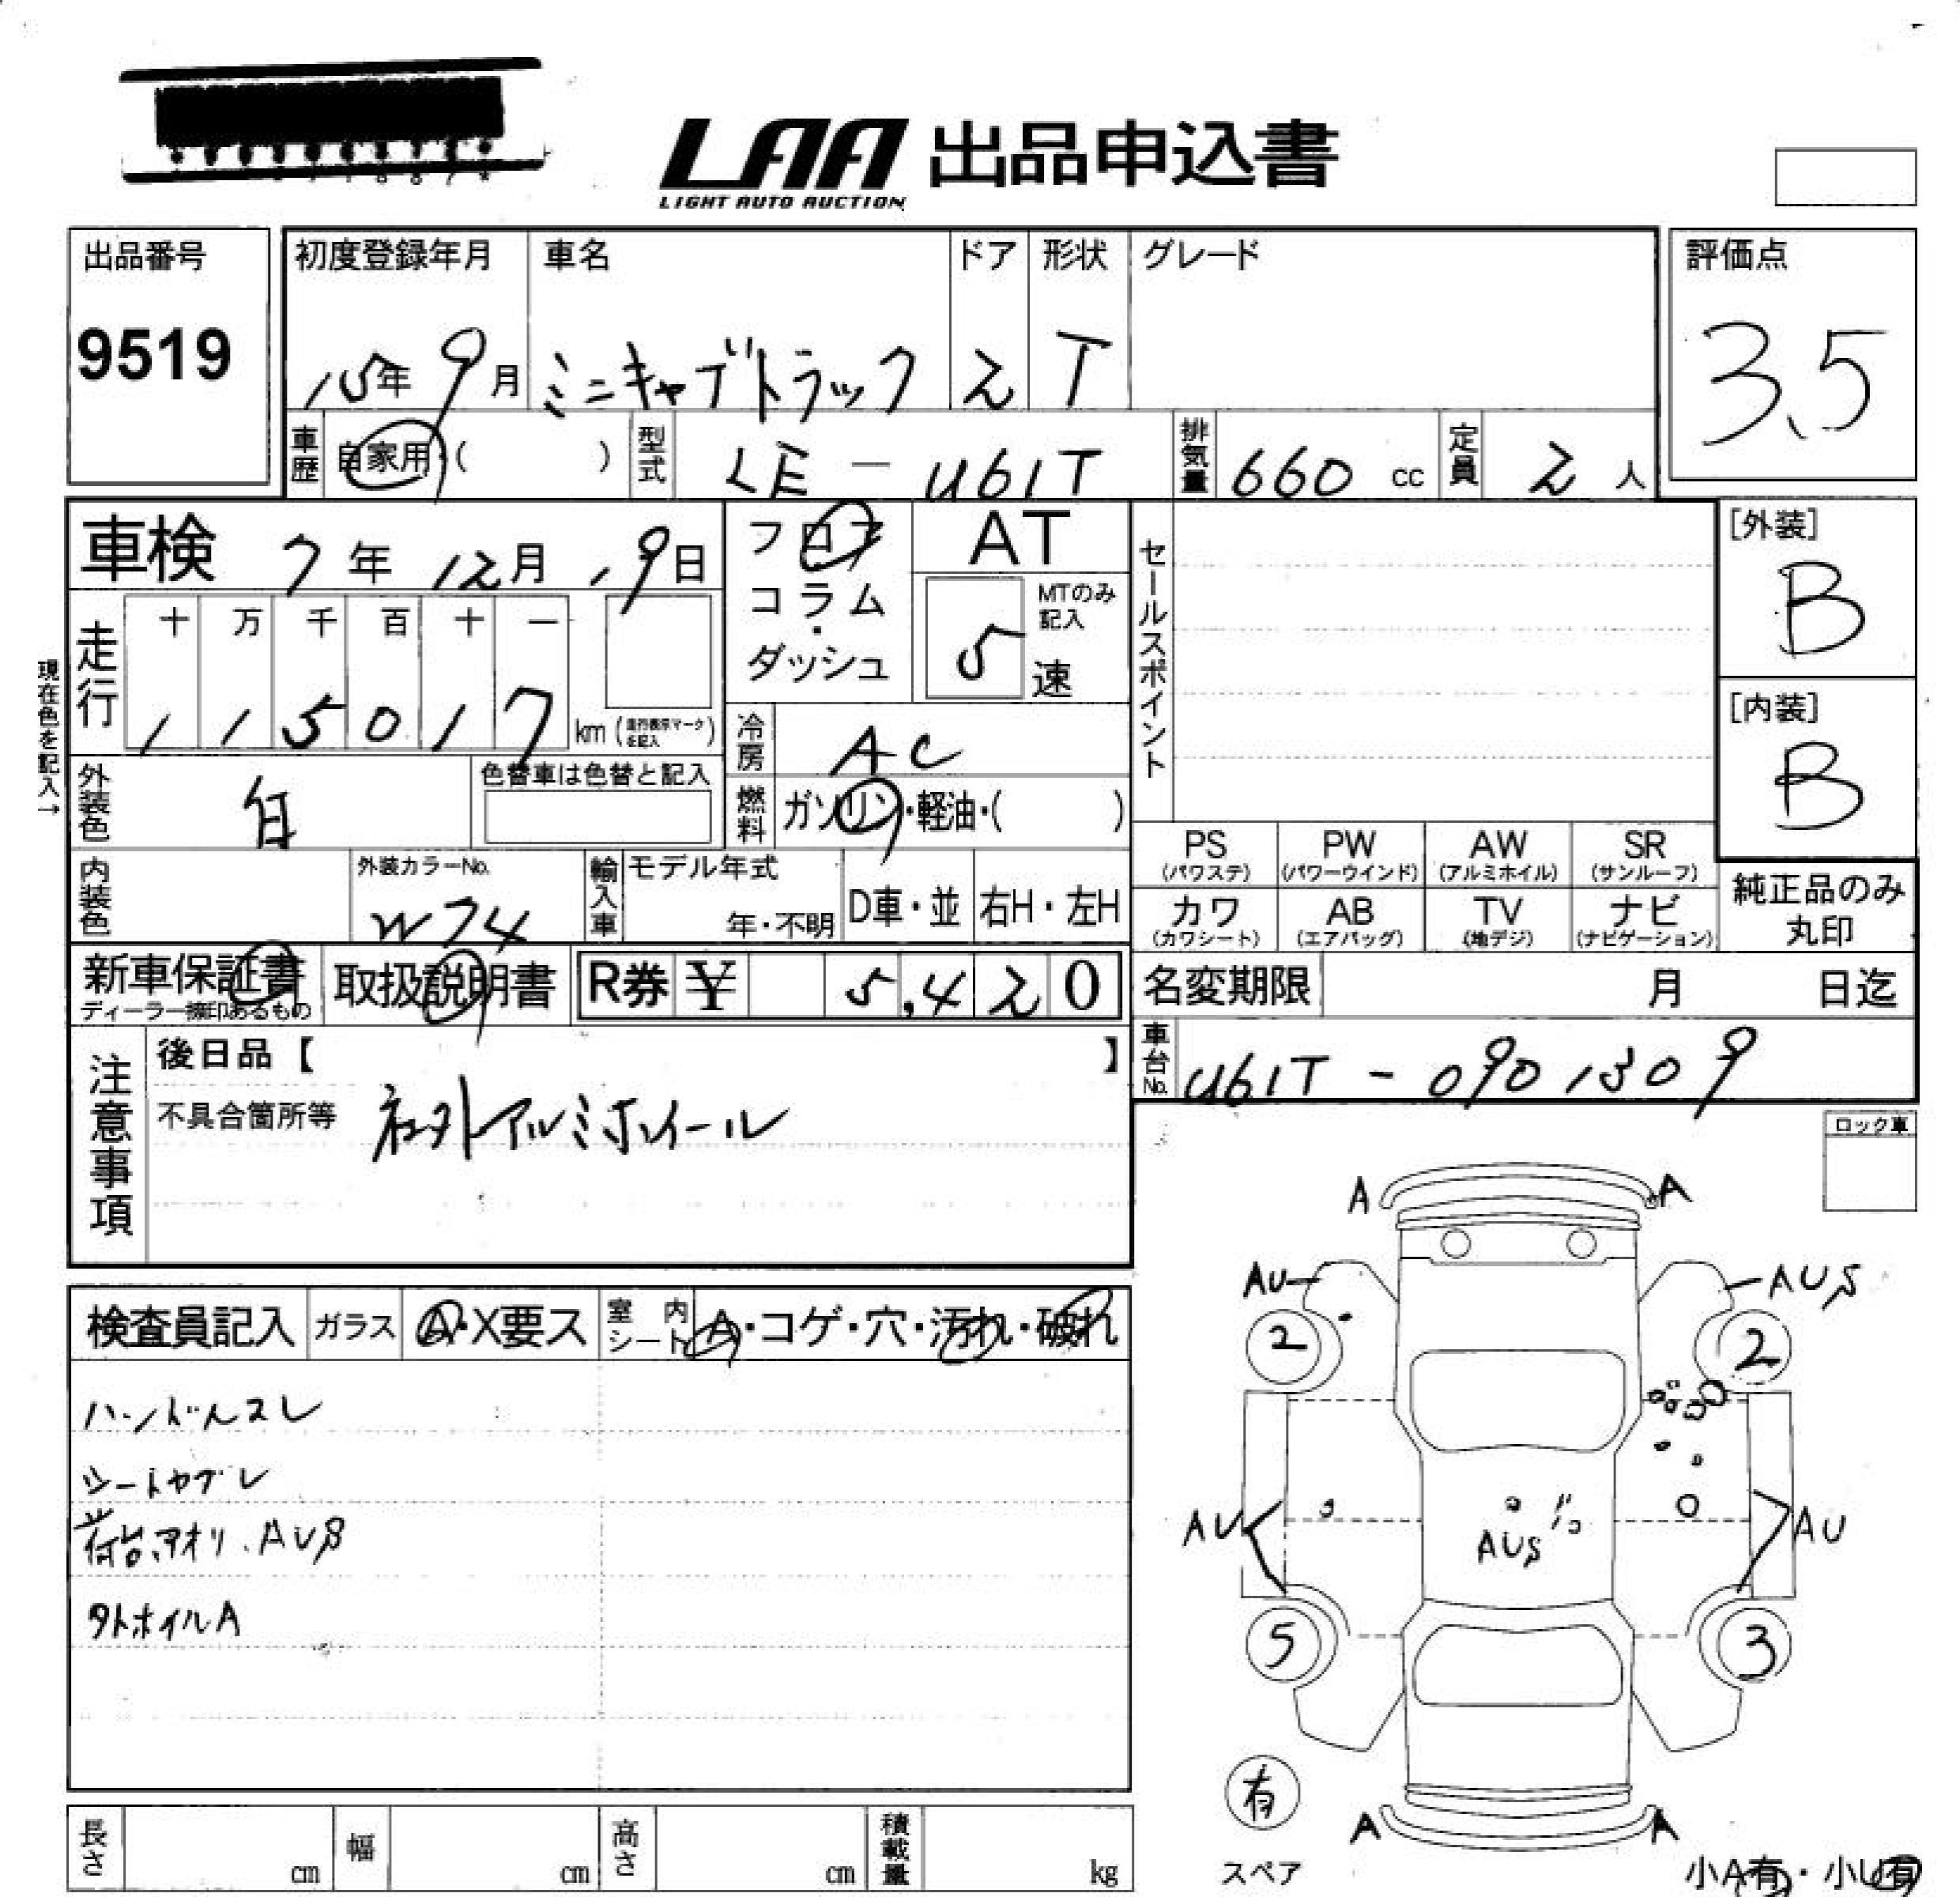 LAA 出品申込書
LIGHT AUTO AUCTION
出品番号 9519
初度登録年月 15年9月
車名 ミニキャブトラック
ドア 2
形状 T
グレード
評価点 3.5
車歴 自家用・( )
型式 LE-U61T
排気量 660 cc
定員 2 人
車検 7年12月19日
フロア・コラム・ダッシュ
AT
MTのみ記入 5 速
セールスポイント
[外装] B
[内装] B
現在色を記入→
走行 十 万 千 百 十 一
1 1 5 0 1 7 km (走行表示マークを記入)
冷房 AC
燃料 ガソリン・軽油・( )
外装色 白
色替車は色替と記入
内装色
外装カラーNo. W74
輸入車 モデル年式 年・不明
D車・並 右H・左H
PS (パワステ) PW (パワーウインド) AW (アルミホイル) SR (サンルーフ)
カワ (カワシート) AB (エアバッグ) TV (地デジ) ナビ (ナビゲーション)
純正品のみ丸印
新車保証書
ディーラー捺印あるもの
取扱説明書
R券 ¥ 5,420
名変期限 月 日迄
車台No. U61T-0901309
注意事項
後日品【 】
不具合箇所等 社外アルミホイール
ロック車
検査員記入
ガラス A・X要ス
室内シート A・コゲ・穴・汚れ・破れ
ハンドルスレ
シートヤブレ
荷台、アオリ、AUS
タトホイルA
A A
AU AUS
2 2
AU AUS AU
5 3
A A
有
スペア
小A有・小U有
長さ cm
幅 cm
高さ cm
積載量 kg